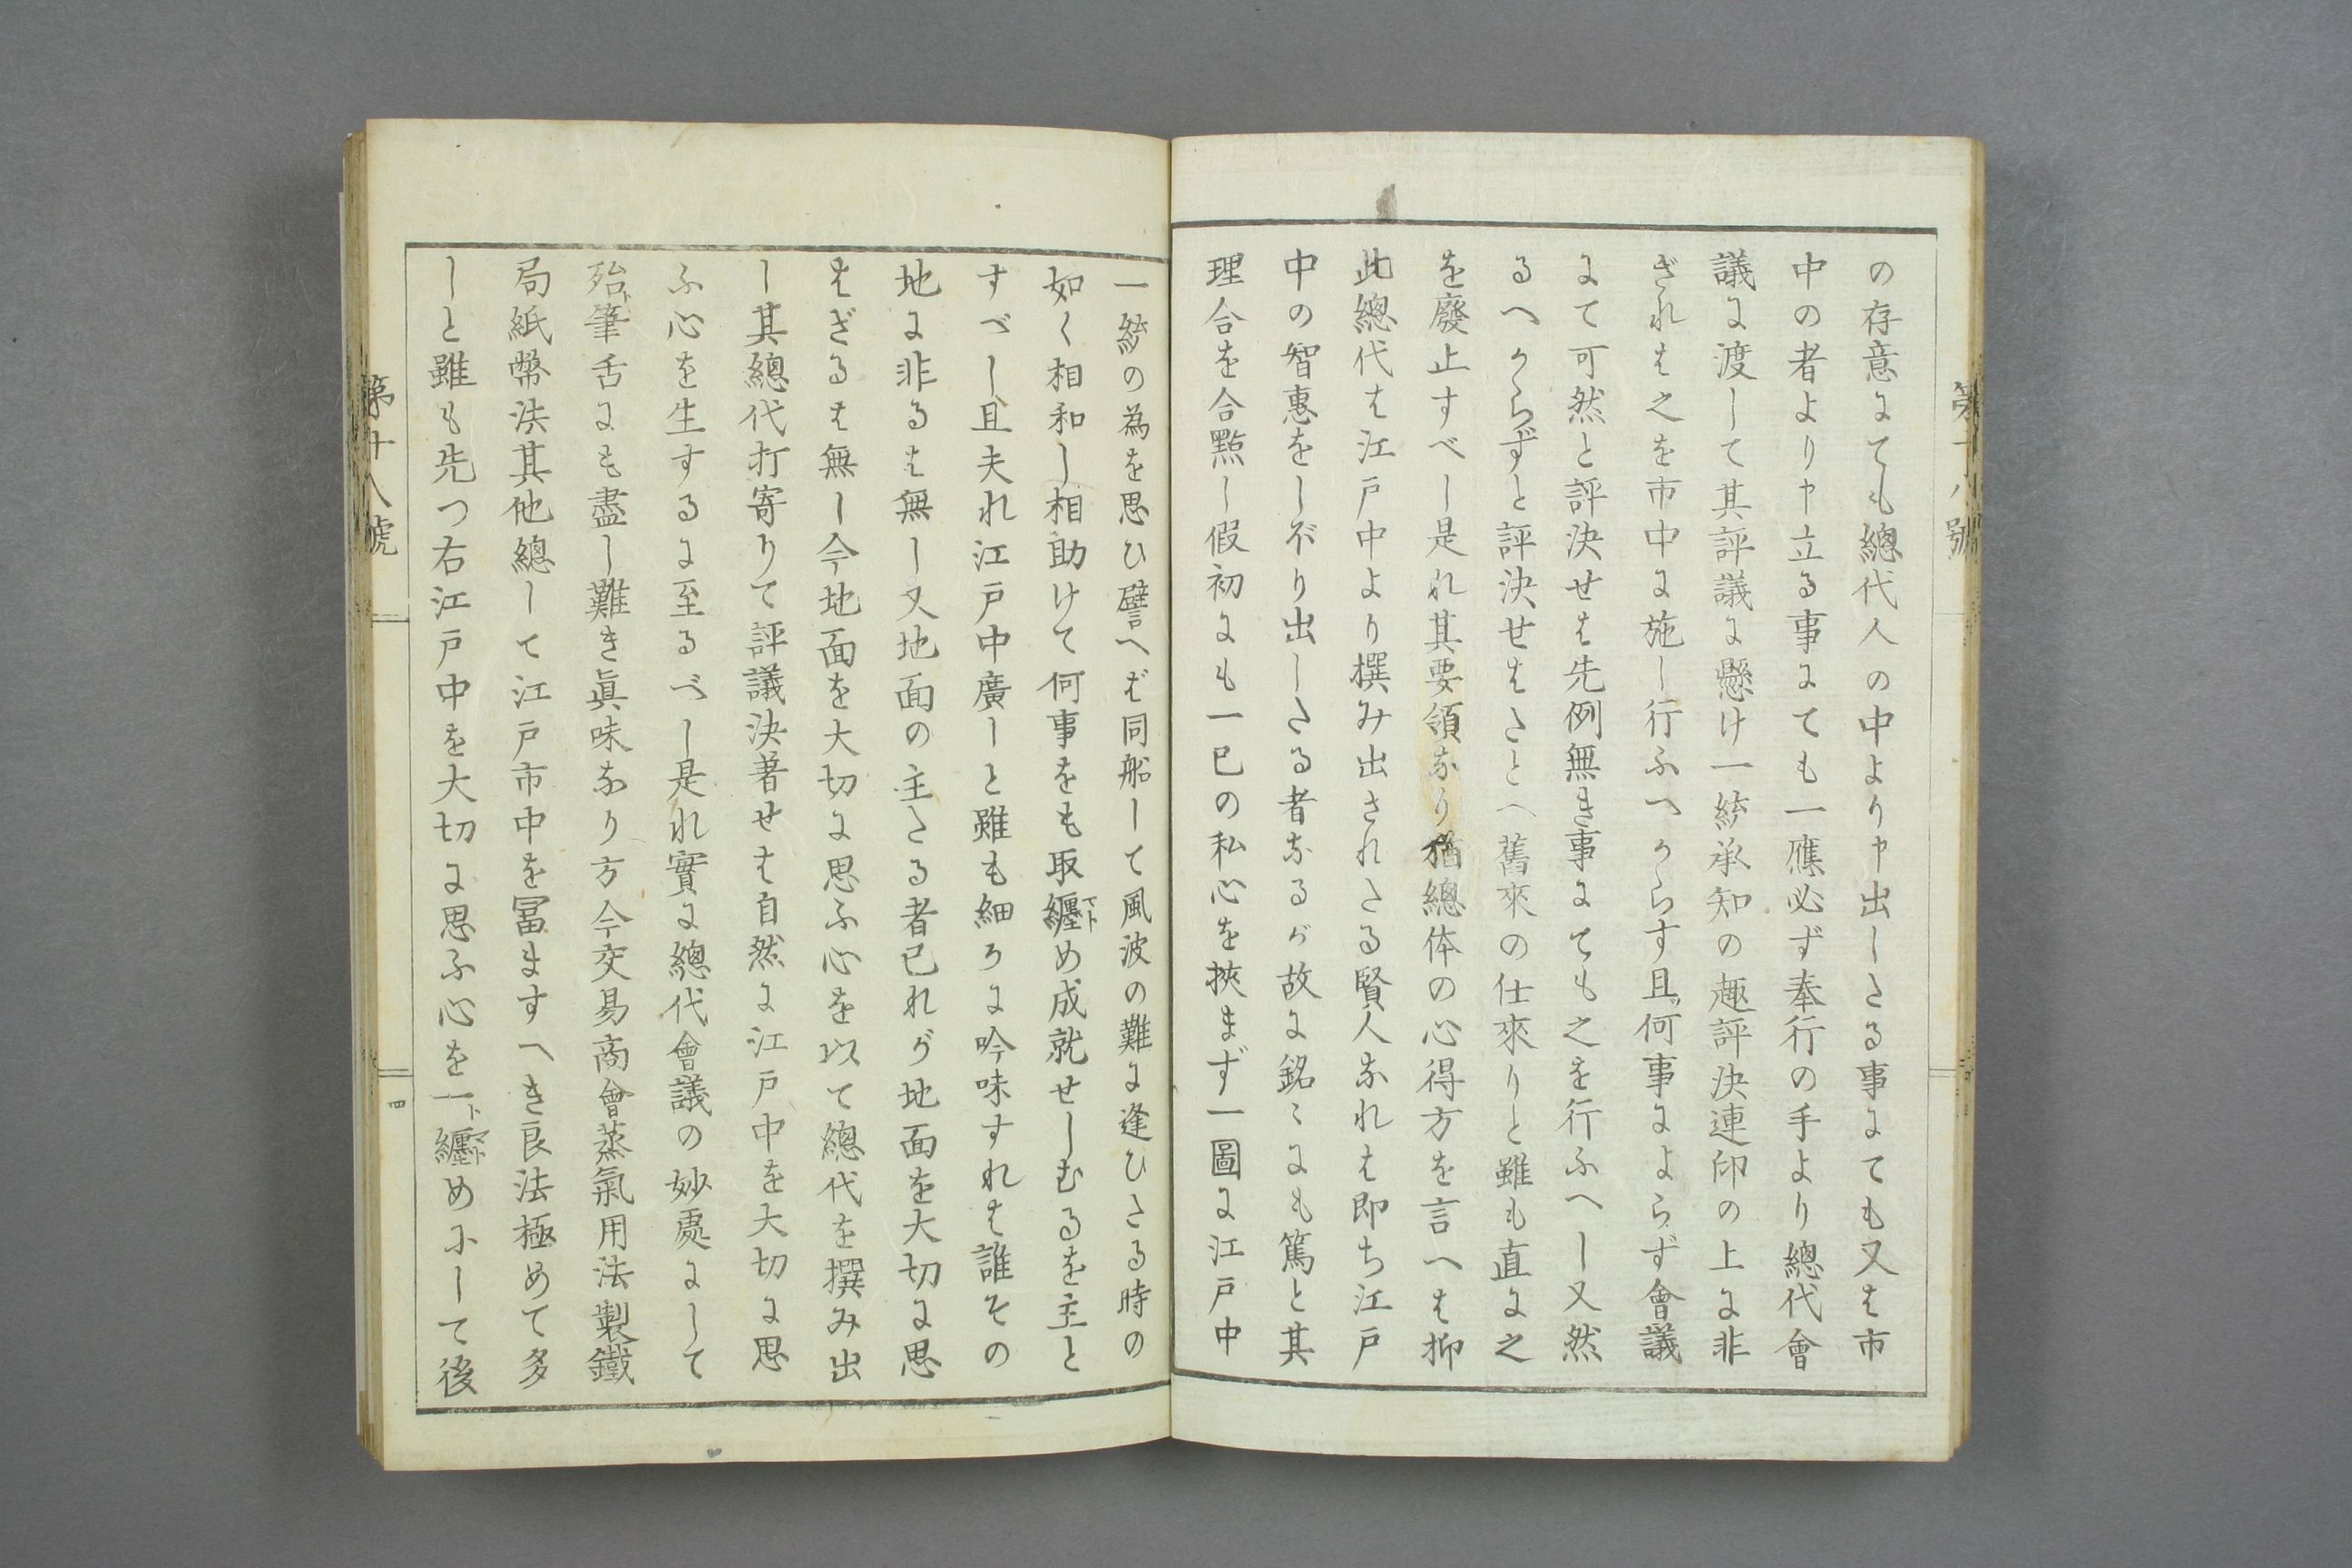 の存意にても總代人の中より申出したる事にても又は市
中の者より申立る事にても一應必ず奉行の手より總代會
議に渡して其評議に懸け一統承知の趣評決連印の上に非
ざれは之を市中に施し行ふへからす且ツ何事によらず會議
にて可然と評決せは先例無き事にても之を行ふへし又然
るへからずと評決せはたとへ舊來の仕來りと雖も直に之
を廢止すべし是れ其要領なり猶總体の心得方を言へは抑
此總代は江戸中より撰み出されたる賢人なれは即ち江戸
中の智惠をしぼり出したる者なるが故に銘〻にも篤と其
理合を合點し假初にも一已の私心を挾まず一圖に江戸中
一統の為を思ひ譬へば同船して風波の難に逢ひたる時の
如く相和し相助けて何事をも取纏マトめ成就せしむるを主と
すべし且夫れ江戸中廣しと雖も細かに吟味すれは誰その
地に非るは無し又地面の主たる者已れが地面を大切に思
はざるは無し今地面を大切に思ふ心を以て總代を撰み出
し其總代打寄りて評議決著せは自然に江戸中を大切に思
ふ心を生するに至るべし是れ實に總代會議の妙處にして
殆ト筆舌にも盡し難き眞味なり方今交易商會蒸氣用法製鐵
局紙幣法其他總して江戸市中を冨ますへき良法極めて多
しと雖も先つ右江戸中を大切に思ふ心を一ト纏マトめにして後
第十八號
第十八號
四